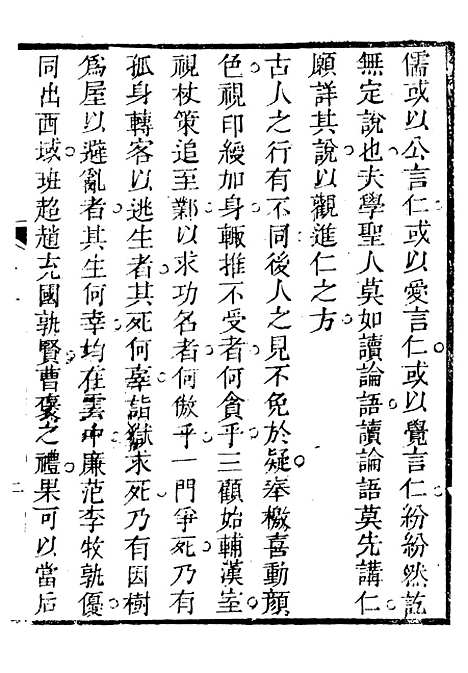 儒或以公言仁或以愛言仁或以覺言仁紛紛然訖
無定說也夫學聖人莫如讀論語讀論語莫先講仁
願詳其說以觀進仁之方
古人之行有不同後人之見不免於疑奉檄喜動顏
色視印綬加身輙推不受者何貪乎三顧始輔漢室
視杖策追至鄴以求功名者何傲乎一門爭死乃有
孤身轉客以逃生者其死何辜詣獄求死乃有因樹
為屋以避亂者其生何幸均在雲中廉范李牧孰優
同出西域班超趙充國孰賢曹褒之禮果可以當后